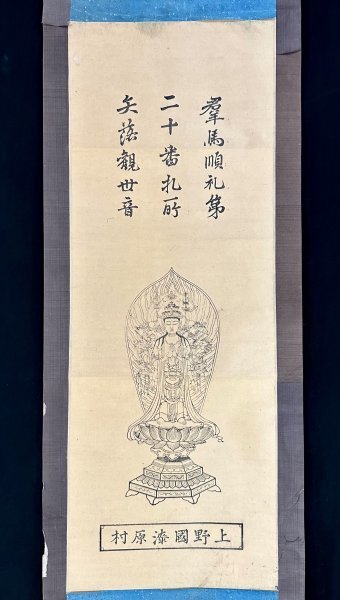 羣馬順礼第
二十番札所
矢落觀世音
上野國漆原村